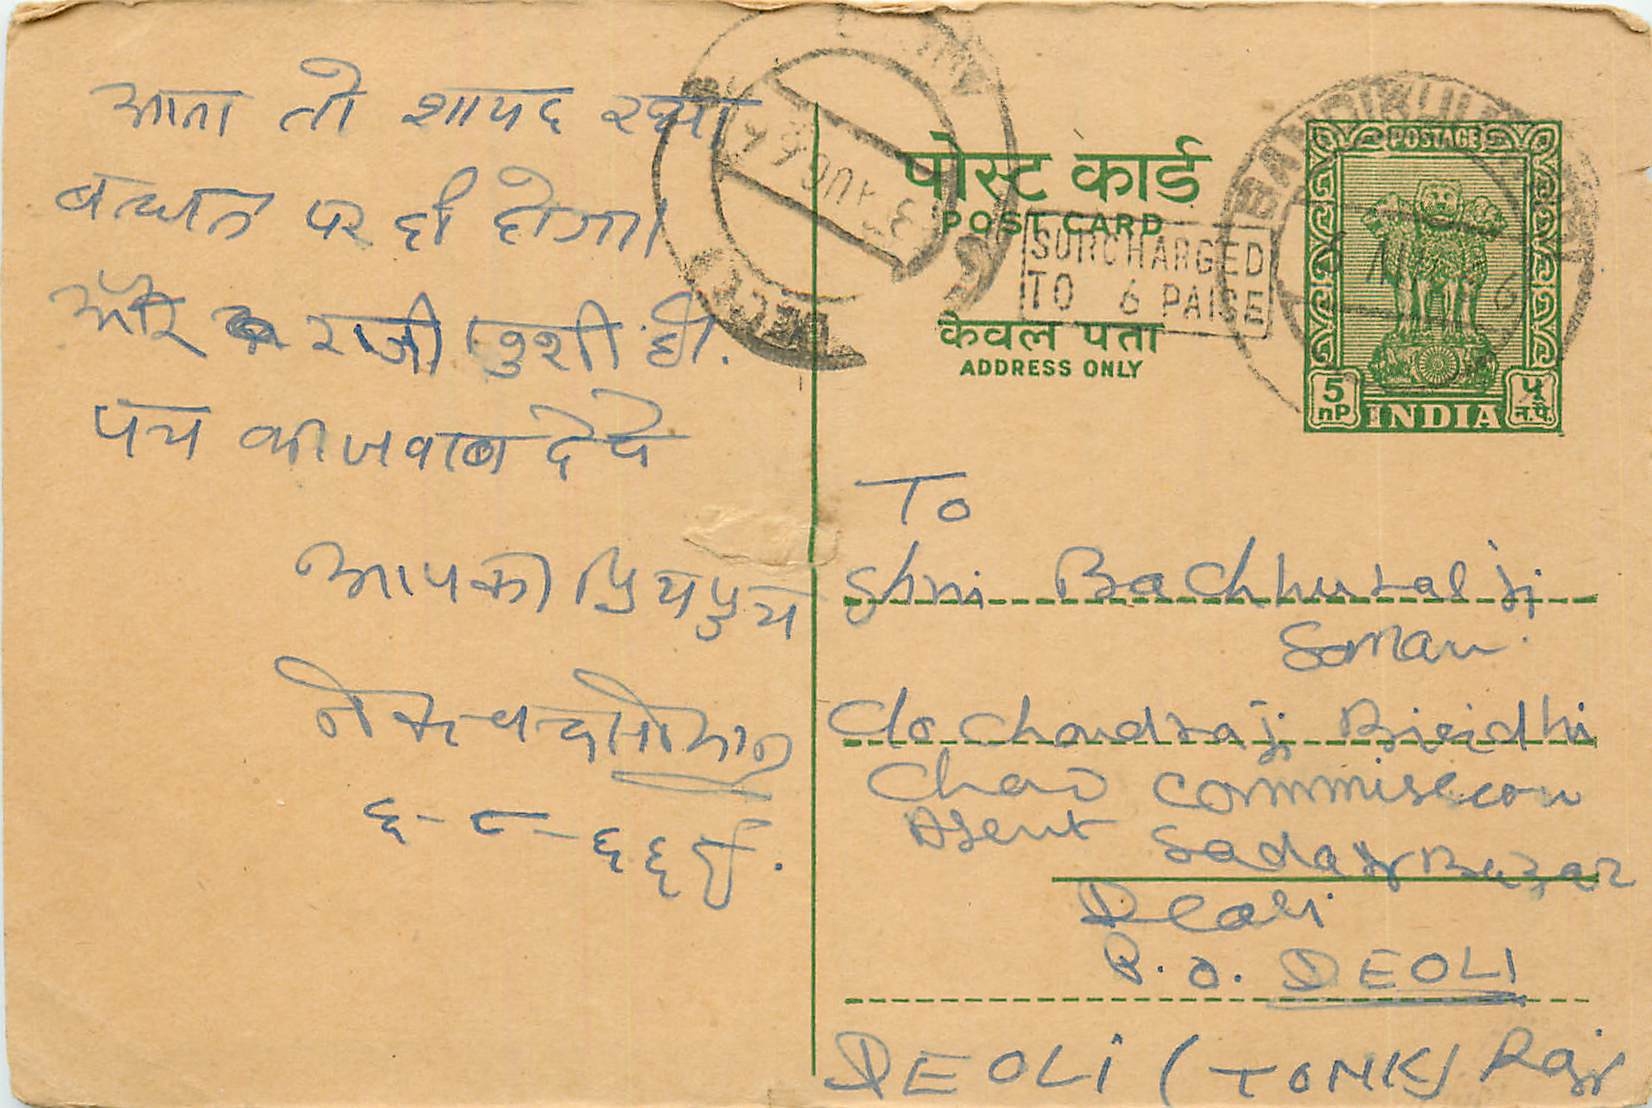 आना तो शायद रक्षा
बन्धन पर ही होगा।
और राजी खुशी है.
पत्र का जवाब देवे
आपका प्रिय पुत्र
सोमानी
६-८-६६ ई.
पोस्ट कार्ड
POST CARD
SURCHARGED
TO 6 PAISE
केवल पता
ADDRESS ONLY
POSTAGE
5 nP INDIA ५ न.पै.
BANDIKUI
DEOLI
AUG 66
To
Shri Bachhuralji
Somani
C/o Chandraji Biridhi
Chand Commission
Agent Sadar Bazar
Deoli
P.O. DEOLI
DEOLI (TONK) Raj